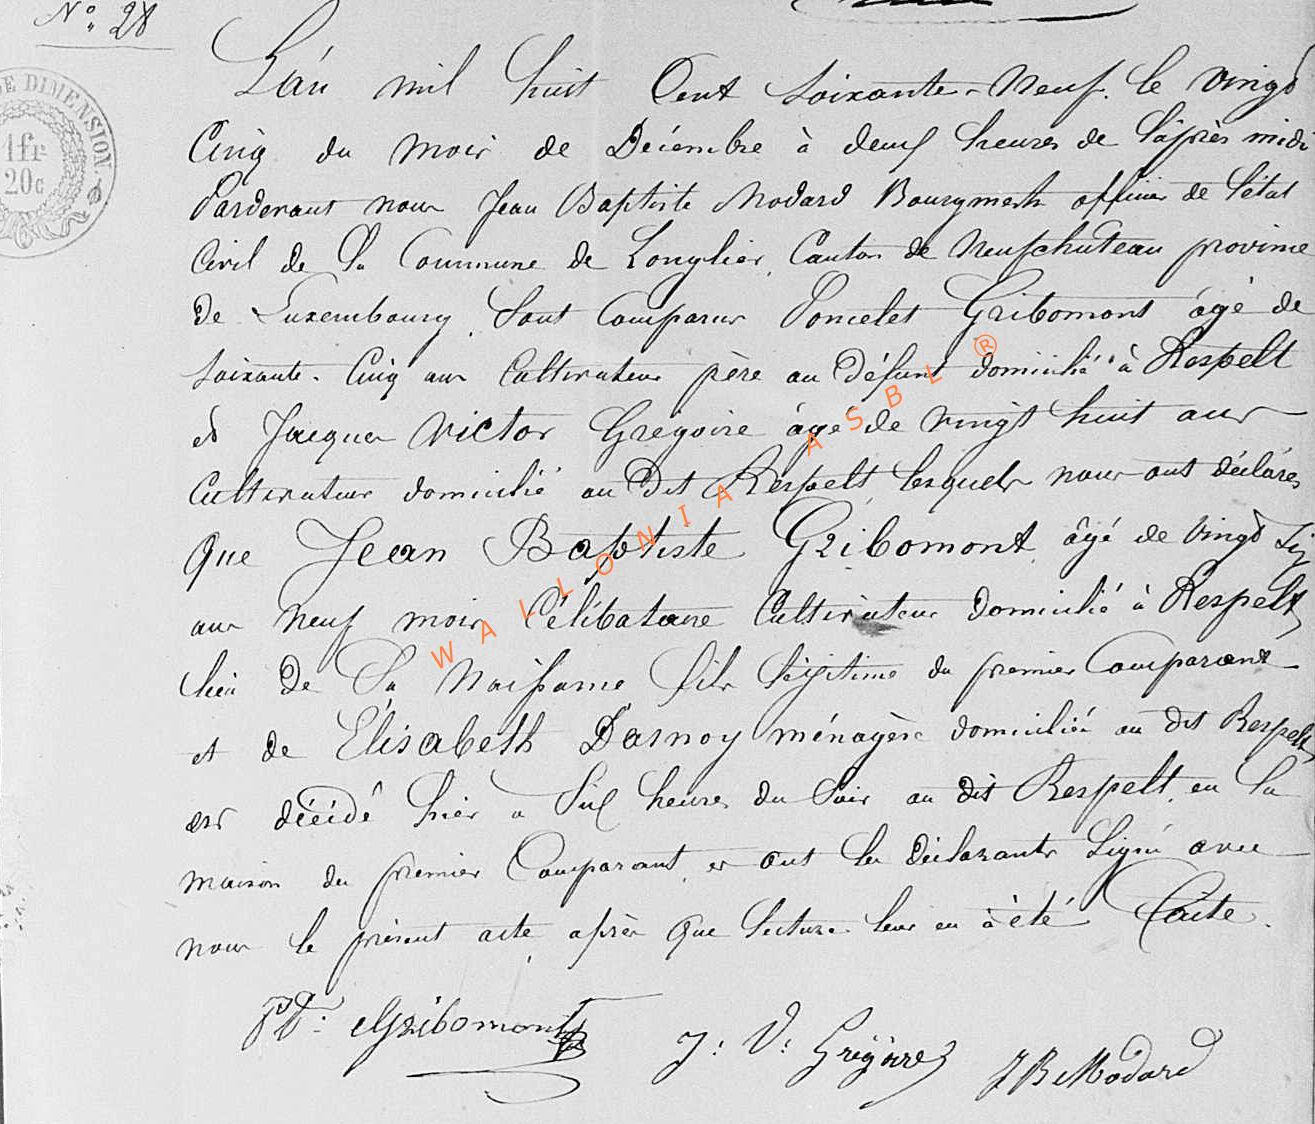 N° 28
DE DIMENSION.
1fr
20c
L'án mil huit Cent soixante-Neuf. le vingt
Cinq du Mois de Décembre à deux heures de l'après midi
Pardevant nous Jean Baptiste Modard Bourgmestre officier de l'état
Civil de la Commune de Longlier, Canton de Neufchateau province
de Luxembourg. Sont Comparus Poncelet Gribomont âgé de
soixante-Cinq ans Cultivateur père au défunt domicilié à Respelt
et Jacques Victor Gregoire âgé de vingt huit ans
Cultivateur domicilié au dit Respelt lesquels nous ont déclarés
que Jean Baptiste Gribomont âgé de vingt Six
ans Neuf mois Célibataire Cultivateur domicilié à Respelt
lieu de Sa Naissance fils légitime du premier Comparant
et de Elisabeth Darnoy ménagère domiciliée au dit Respelt
est décédé hier a Six heures du Soir au dit Respelt, en la
maison du premier Comparant, et ont les déclarants Signé avec
nous le présent acte après que lecture leur en à été faite.
Pt: Gribomont
J: V: Grégoire
JB Modard
WALLONIA ASBL ®